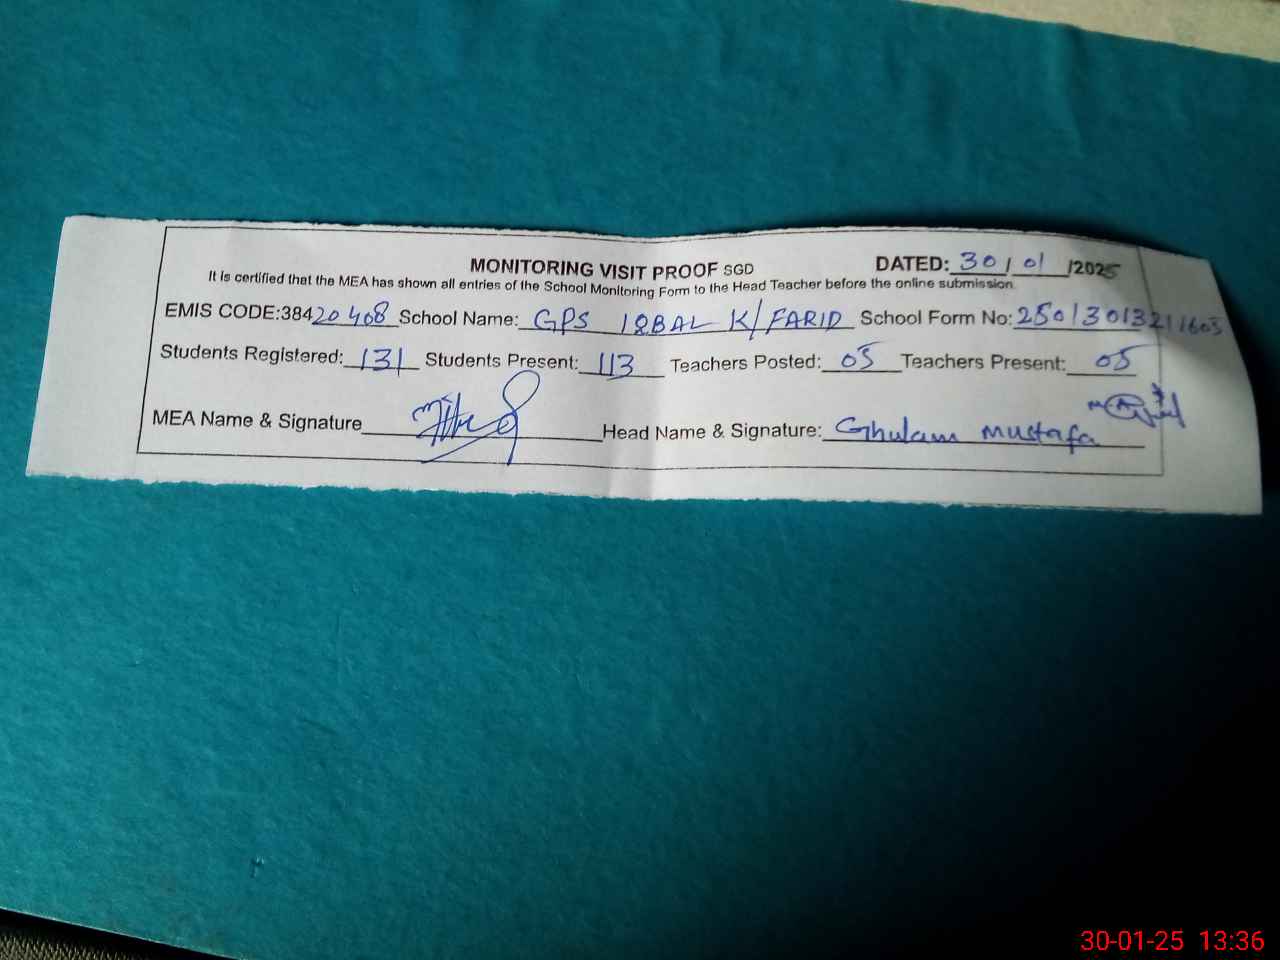 MONITORING VISIT PROOF SGD DATED: 30/01/2025
It is certified that the MEA has shown all entries of the School Monitoring Form to the Head Teacher before the online submission.
EMIS CODE:38420408 School Name: GPS IQBAL K/FARID School Form No: 25013013211605
Students Registered: 131 Students Present: 113 Teachers Posted: 05 Teachers Present: 05
MEA Name & Signature Head Name & Signature: Ghulam Mustafa
30-01-25 13:36